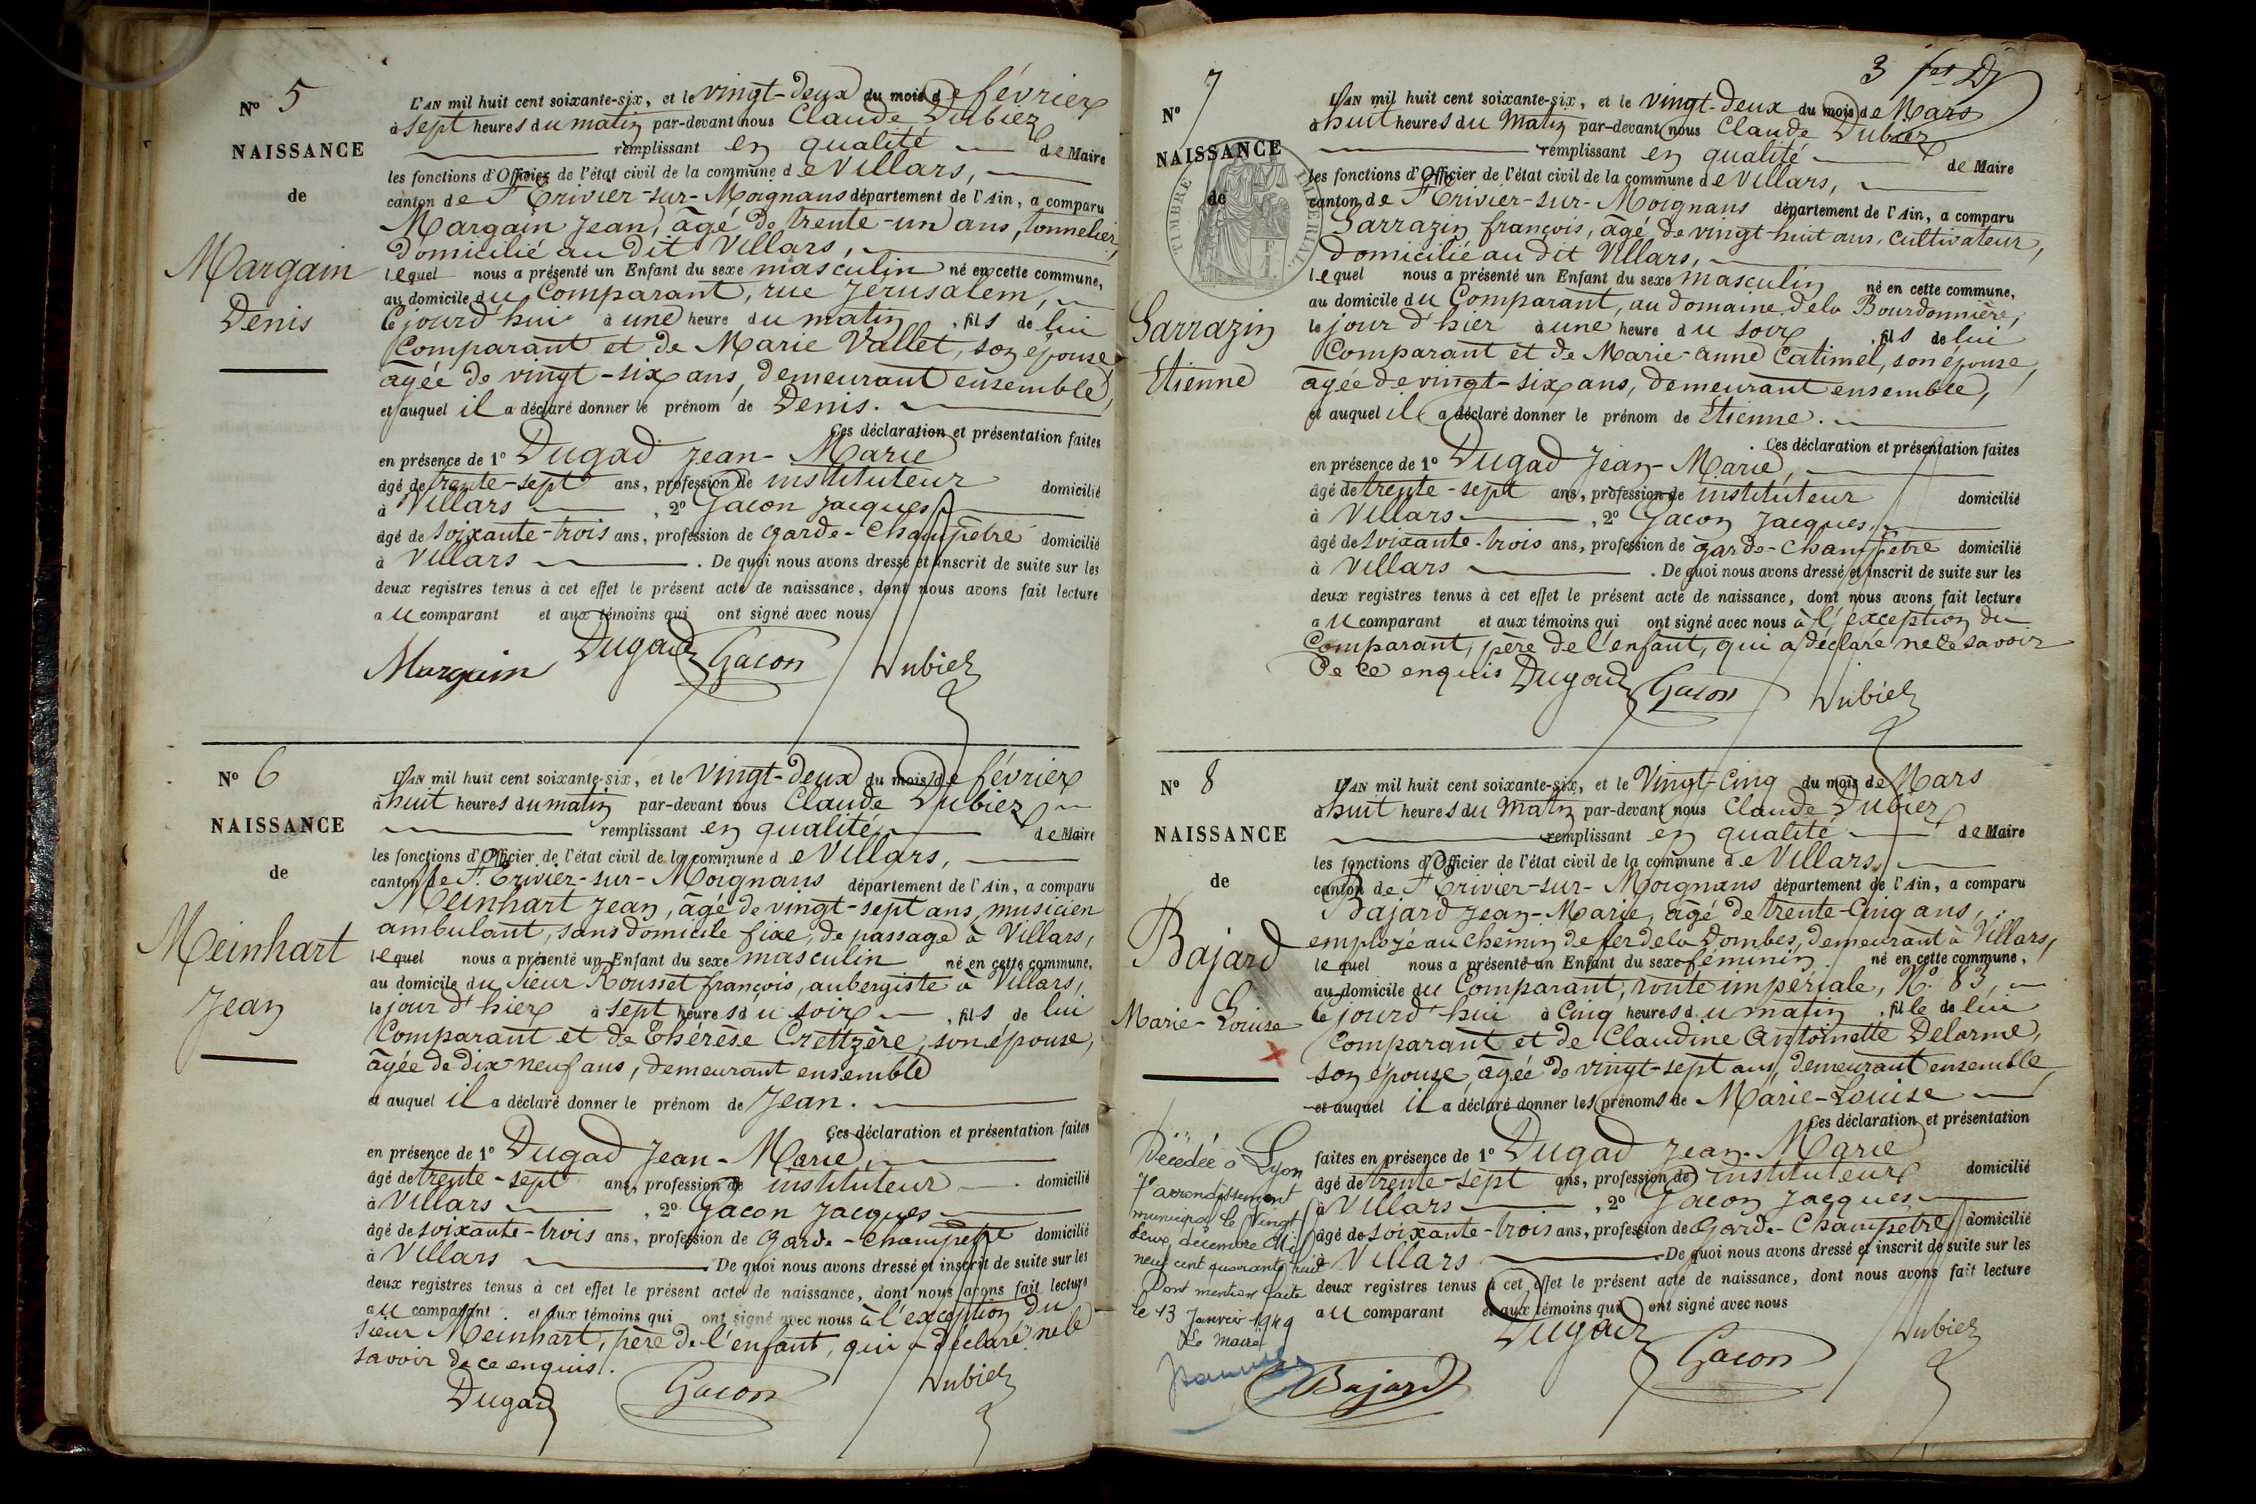 N° 5
NAISSANCE
de
Margain
Denis
L'AN mil huit cent soixante-six, et le vingt-deux du mois de février
à sept heures du matin par-devant nous Claude Dubiez
remplissant en qualité de Maire
les fonctions d'Officier de l'état civil de la commune de Villars,
canton de St Trivier-sur-Moignans département de l'Ain, a comparu
Margain Jean, âgé de trente-un ans, tonnelier,
domicilié au dit Villars,
lequel nous a présenté un Enfant du sexe masculin né en cette commune,
au domicile du Comparant, rue Jérusalem,
le jourd'hui à une heure du matin, fils de lui
Comparant et de Marie Vallet, son épouse
âgée de vingt-six ans, demeurant ensemble,
et auquel il a déclaré donner le prénom de Denis.
Ces déclaration et présentation faites
en présence de 1° Dugad Jean-Marie
âgé de trente-sept ans, profession de instituteur domicilié
à Villars, 2° Gacon Jacques
âgé de soixante-trois ans, profession de garde-champêtre domicilié
à Villars. De quoi nous avons dressé et inscrit de suite sur les
deux registres tenus à cet effet le présent acte de naissance, dont nous avons fait lecture
au comparant et aux témoins qui ont signé avec nous
Margain Dugad Gacon Dubiez
N° 6
NAISSANCE
de
Meinhart
Jean
L'AN mil huit cent soixante-six, et le vingt-deux du mois de février
à huit heures du matin par-devant nous Claude Dubiez
remplissant en qualité de Maire
les fonctions d'Officier de l'état civil de la commune de Villars,
canton de St Trivier-sur-Moignans département de l'Ain, a comparu
Meinhart Jean, âgé de vingt-sept ans, musicien
ambulant, sans domicile fixe, de passage à Villars,
lequel nous a présenté un Enfant du sexe masculin né en cette commune,
au domicile du sieur Rousset françois, aubergiste à Villars,
le jour d'hier à sept heures du soir, fils de lui
Comparant et de Thérèse Crettzère, son épouse,
âgée de dix-neuf ans, demeurant ensemble
et auquel il a déclaré donner le prénom de Jean.
Ces déclaration et présentation faites
en présence de 1° Dugad Jean-Marie,
âgé de trente-sept ans, profession de instituteur domicilié
à Villars, 2° Gacon Jacques
âgé de soixante-trois ans, profession de garde-champêtre domicilié
à Villars. De quoi nous avons dressé et inscrit de suite sur les
deux registres tenus à cet effet le présent acte de naissance, dont nous avons fait lecture
au comparant et aux témoins qui ont signé avec nous à l'exception du
sieur Meinhart, père de l'enfant, qui a déclaré ne le
savoir de ce enquis.
Dugad Gacon Dubiez
3
N° 7
NAISSANCE
de
TIMBRE IMPERIAL
Sarrazin
Etienne
L'AN mil huit cent soixante-six, et le vingt-deux du mois de Mars
à huit heures du matin par-devant nous Claude Dubiez
remplissant en qualité de Maire
les fonctions d'Officier de l'état civil de la commune de Villars,
canton de St Trivier-sur-Moignans département de l'Ain, a comparu
Sarrazin françois, âgé de vingt huit ans, cultivateur,
domicilié au dit Villars,
lequel nous a présenté un Enfant du sexe masculin né en cette commune,
au domicile du Comparant, au domaine de la Bourdonnière,
le jour d'hier à une heure du soir, fils de lui
Comparant et de Marie-anne Catimel, son épouse,
âgée de vingt-six ans, demeurant ensemble,
et auquel il a déclaré donner le prénom de Etienne.
Ces déclaration et présentation faites
en présence de 1° Dugad Jean-Marie,
âgé de trente-sept ans, profession de instituteur domicilié
à Villars, 2° Gacon Jacques,
âgé de soixante-trois ans, profession de garde-champêtre domicilié
à Villars. De quoi nous avons dressé et inscrit de suite sur les
deux registres tenus à cet effet le présent acte de naissance, dont nous avons fait lecture
au comparant et aux témoins qui ont signé avec nous à l'exception du
Comparant, père de l'enfant, qui a déclaré ne le savoir
de ce enquis Dugad Gacon Dubiez
N° 8
NAISSANCE
de
Bajard
Marie-Louise
Décédée à Lyon
7e arrondissement
municipal le vingt
deux décembre Mil
neuf cent quarante huit
Dont mention faite
le 13 Janvier 1949
Le Maire
L'AN mil huit cent soixante-six, et le Vingt-Cinq du mois de Mars
à huit heures du matin par-devant nous Claude Dubiez
remplissant en qualité de Maire
les fonctions d'Officier de l'état civil de la commune de Villars,
canton de St Trivier-sur-Moignans département de l'Ain, a comparu
Bajard Jean-Marie, âgé de trente-Cinq ans,
employé au chemin de fer de la Dombes, demeurant à Villars,
lequel nous a présenté un Enfant du sexe féminin né en cette commune,
au domicile du Comparant, route impériale, N° 83,
le jourd'hui à Cinq heures du matin, fille de lui
Comparant et de Claudine Antoinette Delorme,
son épouse, âgée de vingt-sept ans, demeurant ensemble,
et auquel il a déclaré donner les prénoms de Marie-Louise
Ces déclaration et présentation
faites en présence de 1° Dugad Jean-Marie
âgé de trente-sept ans, profession de instituteur domicilié
à Villars, 2° Gacon Jacques
âgé de soixante-trois ans, profession de Garde-Champêtre domicilié
à Villars. De quoi nous avons dressé et inscrit de suite sur les
deux registres tenus à cet effet le présent acte de naissance, dont nous avons fait lecture
au comparant et aux témoins qui ont signé avec nous
Dugad Gacon Dubiez
Bajard